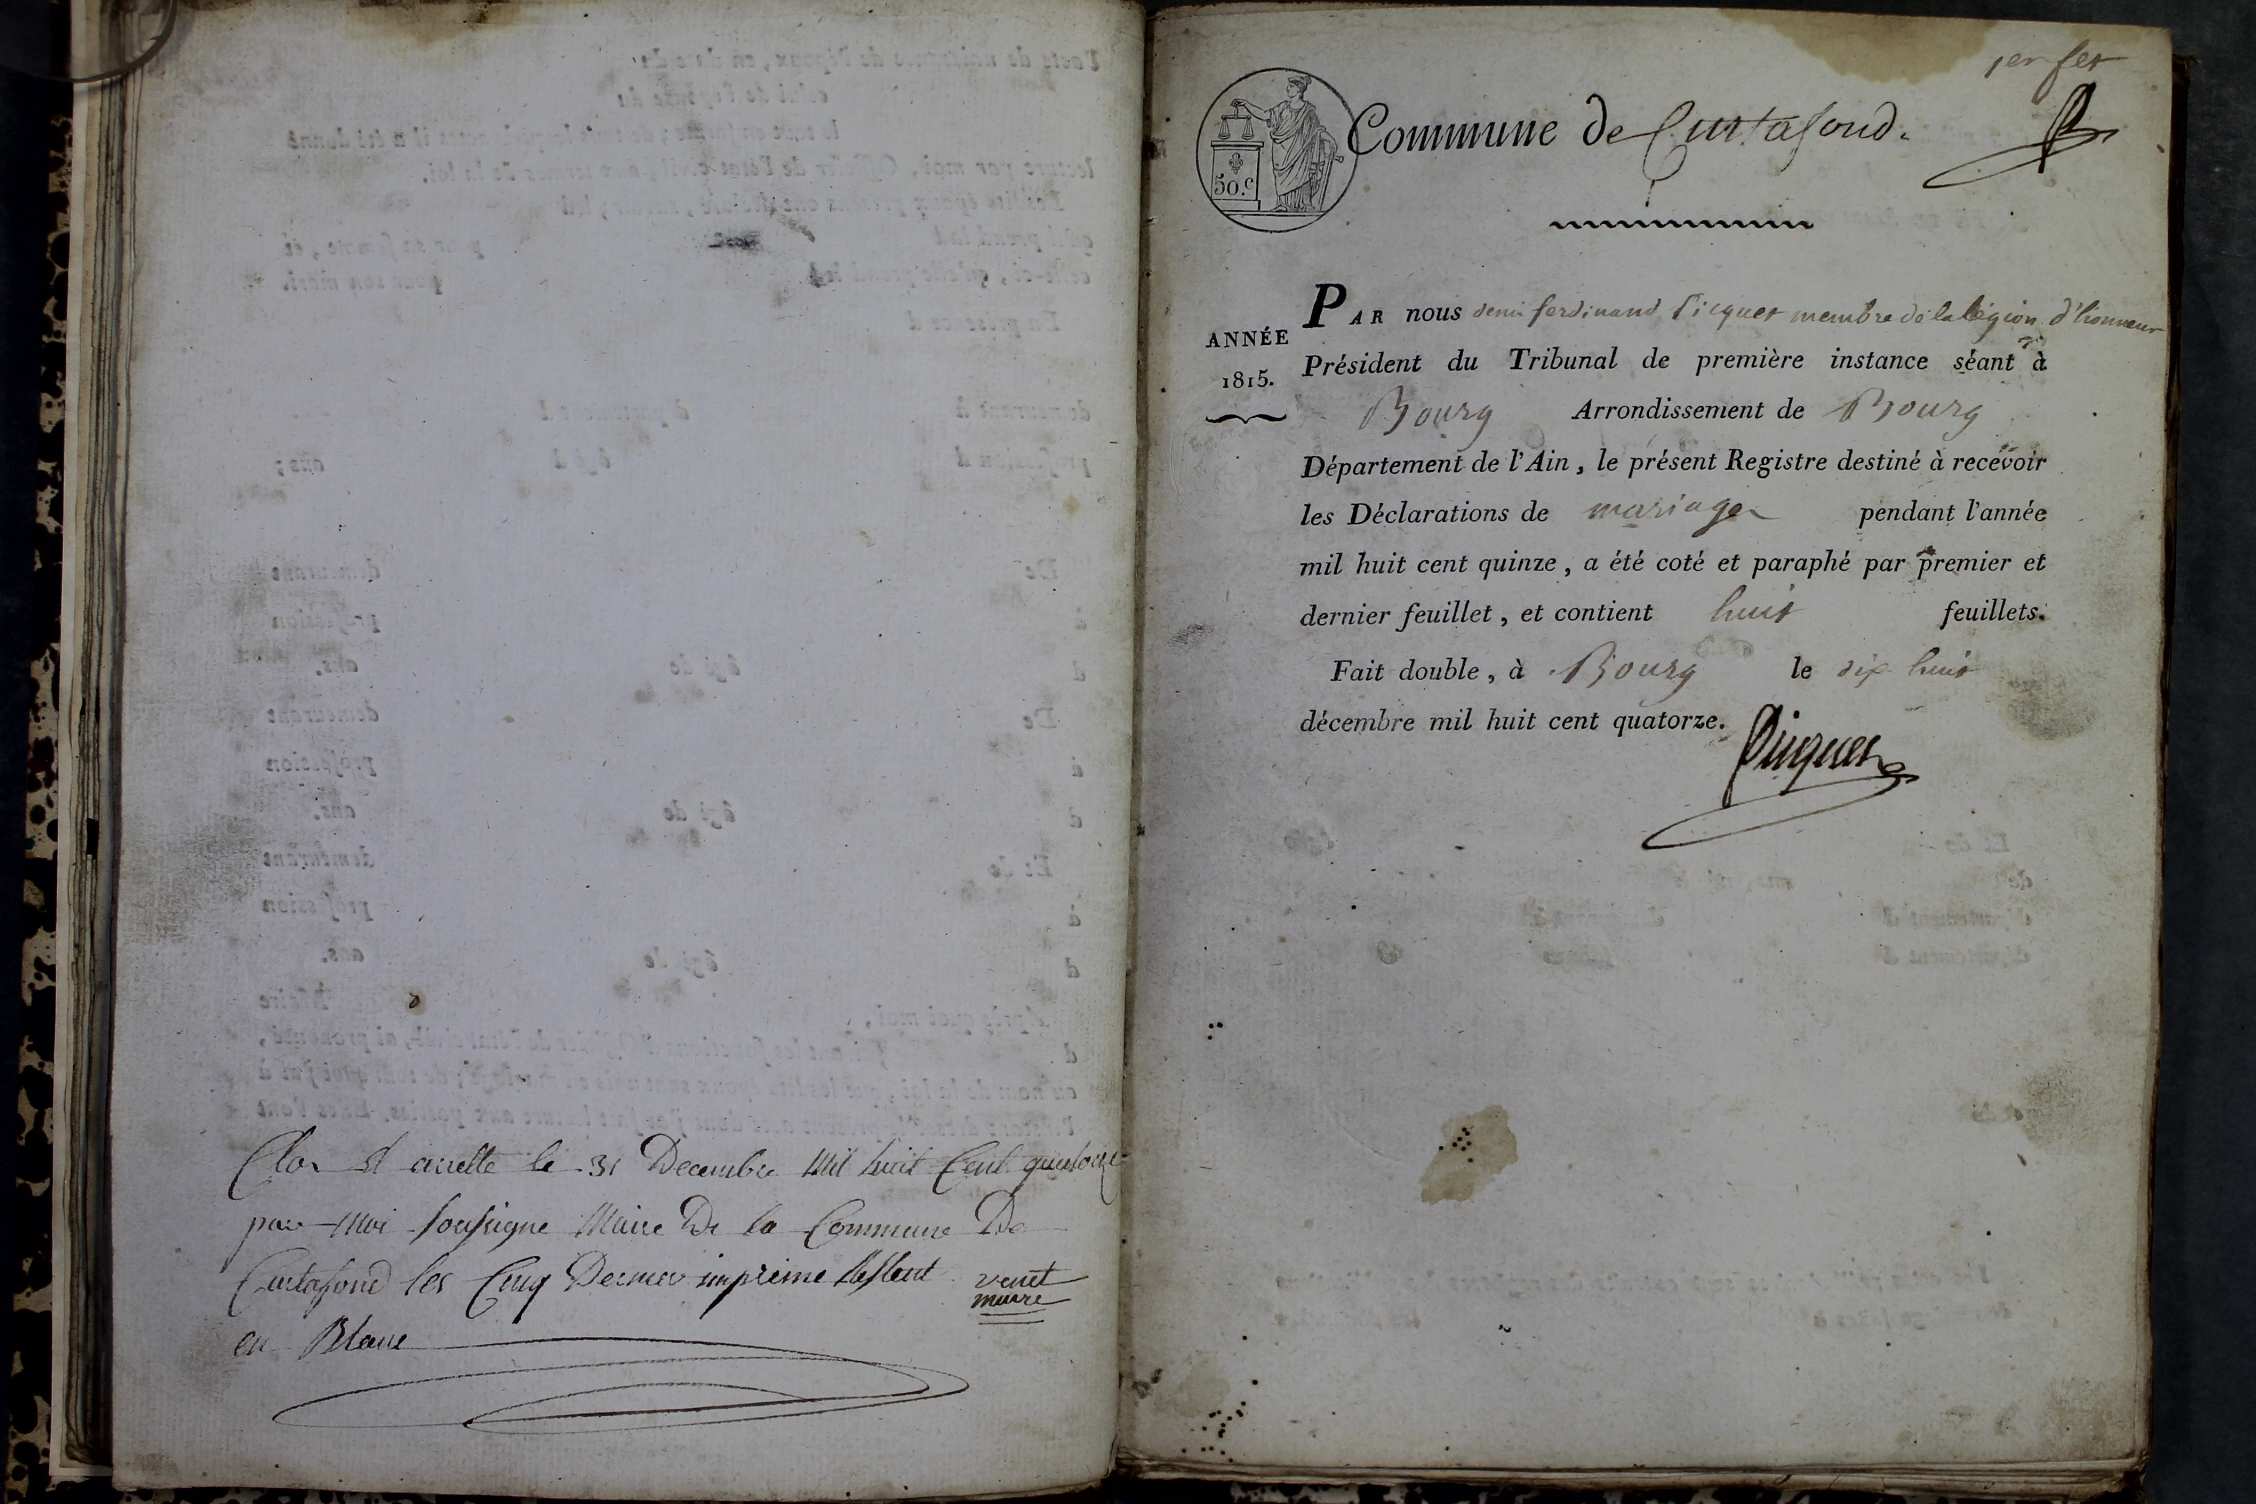 Clos et arretté le 31 Decembre Mil huit Cent quatorze
par Moi soussigne Maire De la Commune De
Curtafond les Cinq Dernier imprime Restant
en Blanc
venet
maire
1er fet
50.c
Commune de Curtafond.
ANNÉE
1815.
PAR nous denis ferdinand Picquet membre de la légion d'honneur
Président du Tribunal de première instance séant à
Bourg Arrondissement de Bourg
Département de l'Ain, le présent Registre destiné à recevoir
les Déclarations de mariages pendant l'année
mil huit cent quinze, a été coté et paraphé par premier et
dernier feuillet, et contient huit feuillets.
Fait double, à Bourg le dix huit
décembre mil huit cent quatorze.
Picquet